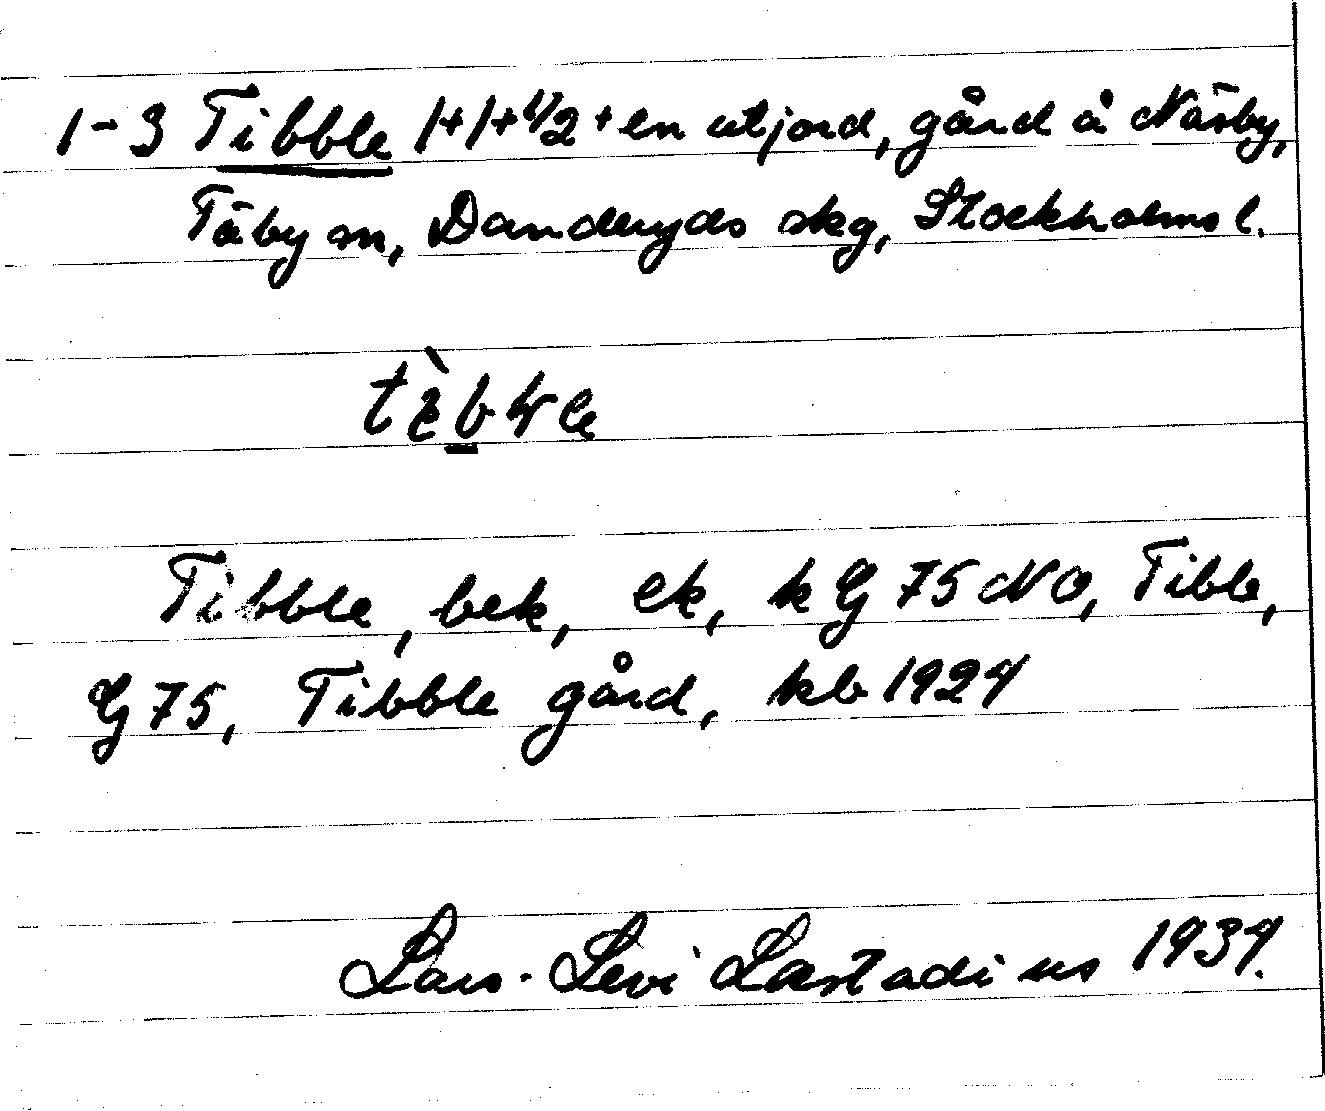 1-3 Tibble 1+1+1/2+en utjord, gård å Näsby,
Täby sn, Danderyds skg, Stockholms l.
Tibble, bek, ek, k G 75 NO, Tible,
G 75, Tibble gård, kb 1924
Lars-Levi Læstadius 1934.